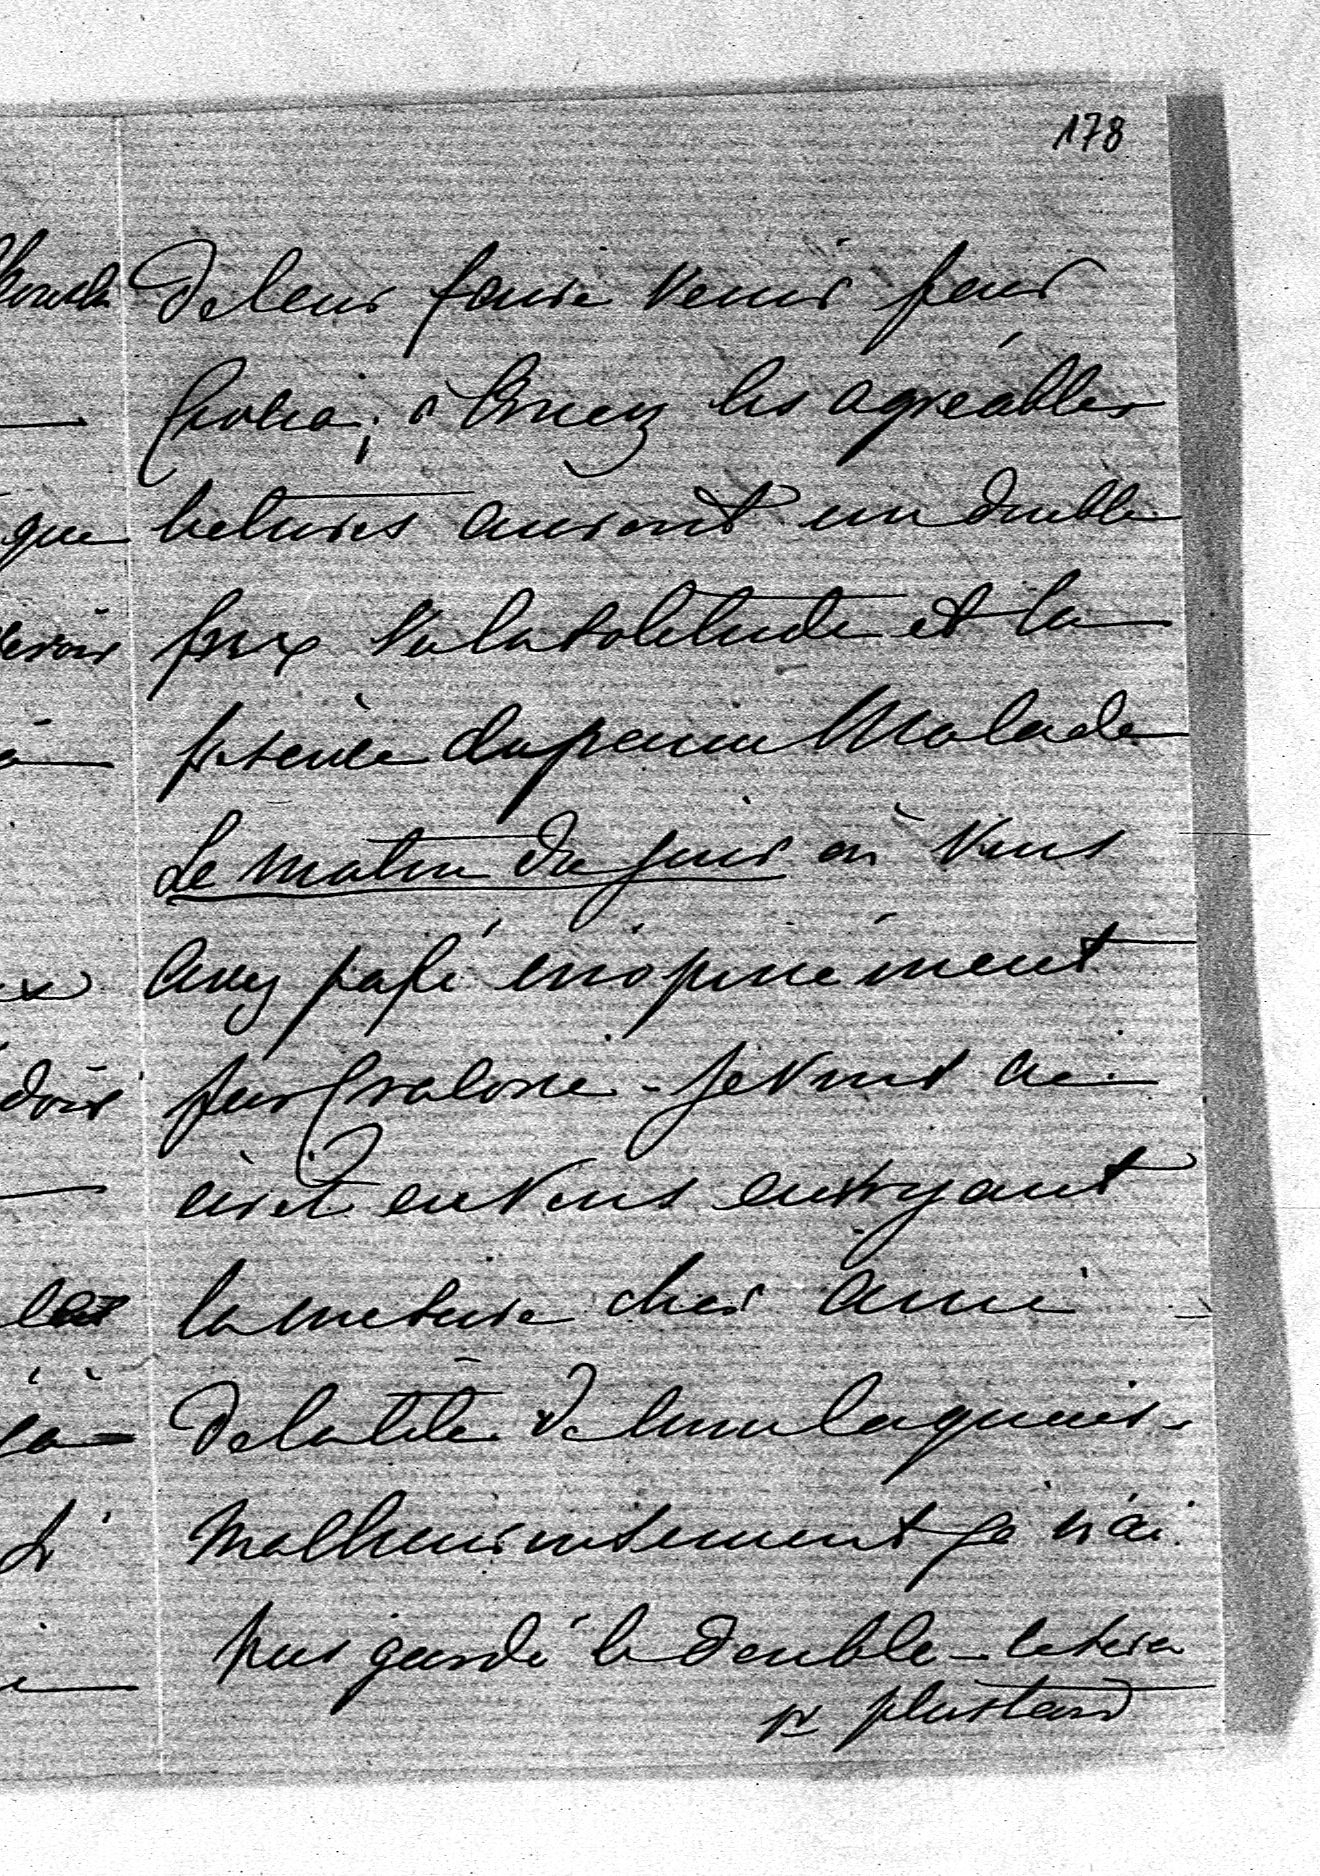 178
De leur faire venir pour
à Bucy les agréables
lectures auront un double
prix Vu la solitude et la
présence du pauvre Malade
Le matin du jour où Vous
avez passé inopinément
par je vous ai
écrit en Vous envoyant
la mesure cher ami
De la tête De
Malheureusement je n'ai
pas gardé le double - ce sera
pr plus tard
que